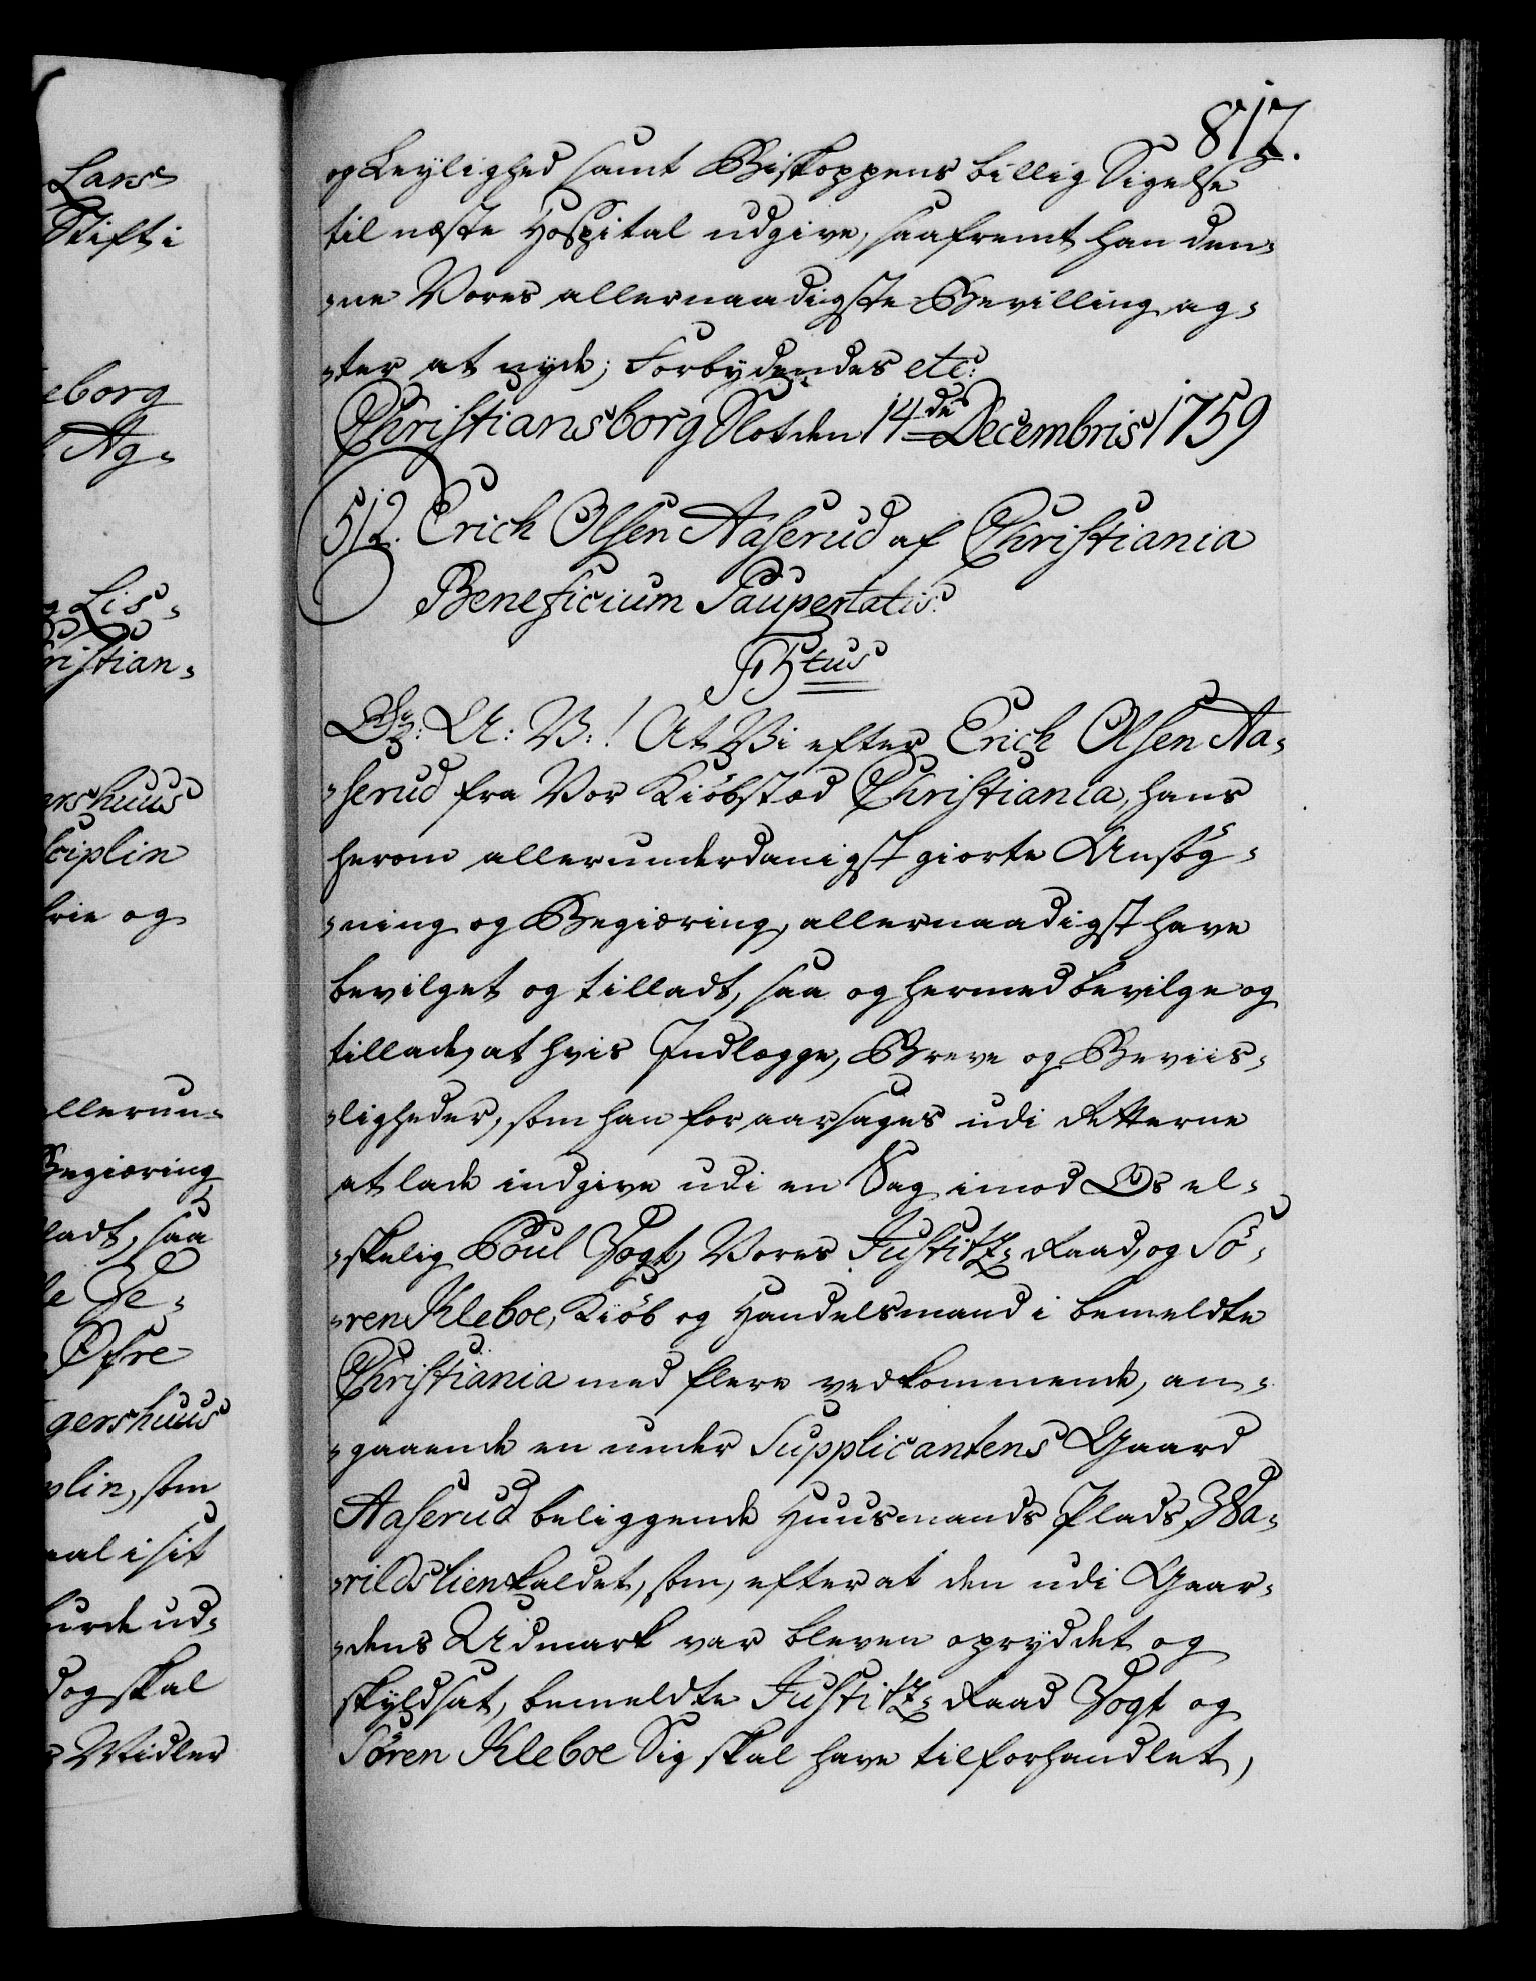 Lars
Stift i
eborg
Ag-
g Lis-
ristian-
ershuus
sciplin
frie og
allerun-
Begiæring
ladt, saa
le Ge-
Øfre
gershuus
plin, som
aal i sit
burde ud-
dog skal
s Midler
817.
og Leylighed samt Biskoppens billig Sigelse
til næste Hospital udgive, saafremt han den-
-ne Vores allernaadigste Bevilling ag-
-ter at nyde; Forbydendes etc:
Christiansborg Slot den 14de Decembris 1759
512. Erich Olsen Aaserud af Christiania
Beneficium Paupertatis.
F5tus
G: A: V:! At Vi efter Erich Olsen Aa-
-serud fra Vor Kiöbstæd Christiania, hans
herom allerunderdanigst giorte Ansög-
-ning og Begiæring, allernaadigst have
bevilget og tilladt, saa og hermed bevilge og
tillade, at hvis Indlægge, Breve og Beviis-
-ligheder, som han foraarsages udi Retterne
at lade indgive udi en Sag imod Os el-
-skelig Poul Vogt, Vores Justitz-Raad, og Sö-
-ren Kleboe, Kiöb og Handelsmand i bemeldte
Christiania med flere vedkommende, an-
-gaaende en under Supplicantens Gaard
Aaserud beliggende Huusmands Plads, Wa-
-rildslien kaldet, som, efter at den udi Gaar-
-dens Udmark var bleven opryddet og
skyldsat, bemeldte Justitz-Raad Vogt og
Sören Kleboe Sig skal have tilforhandlet,